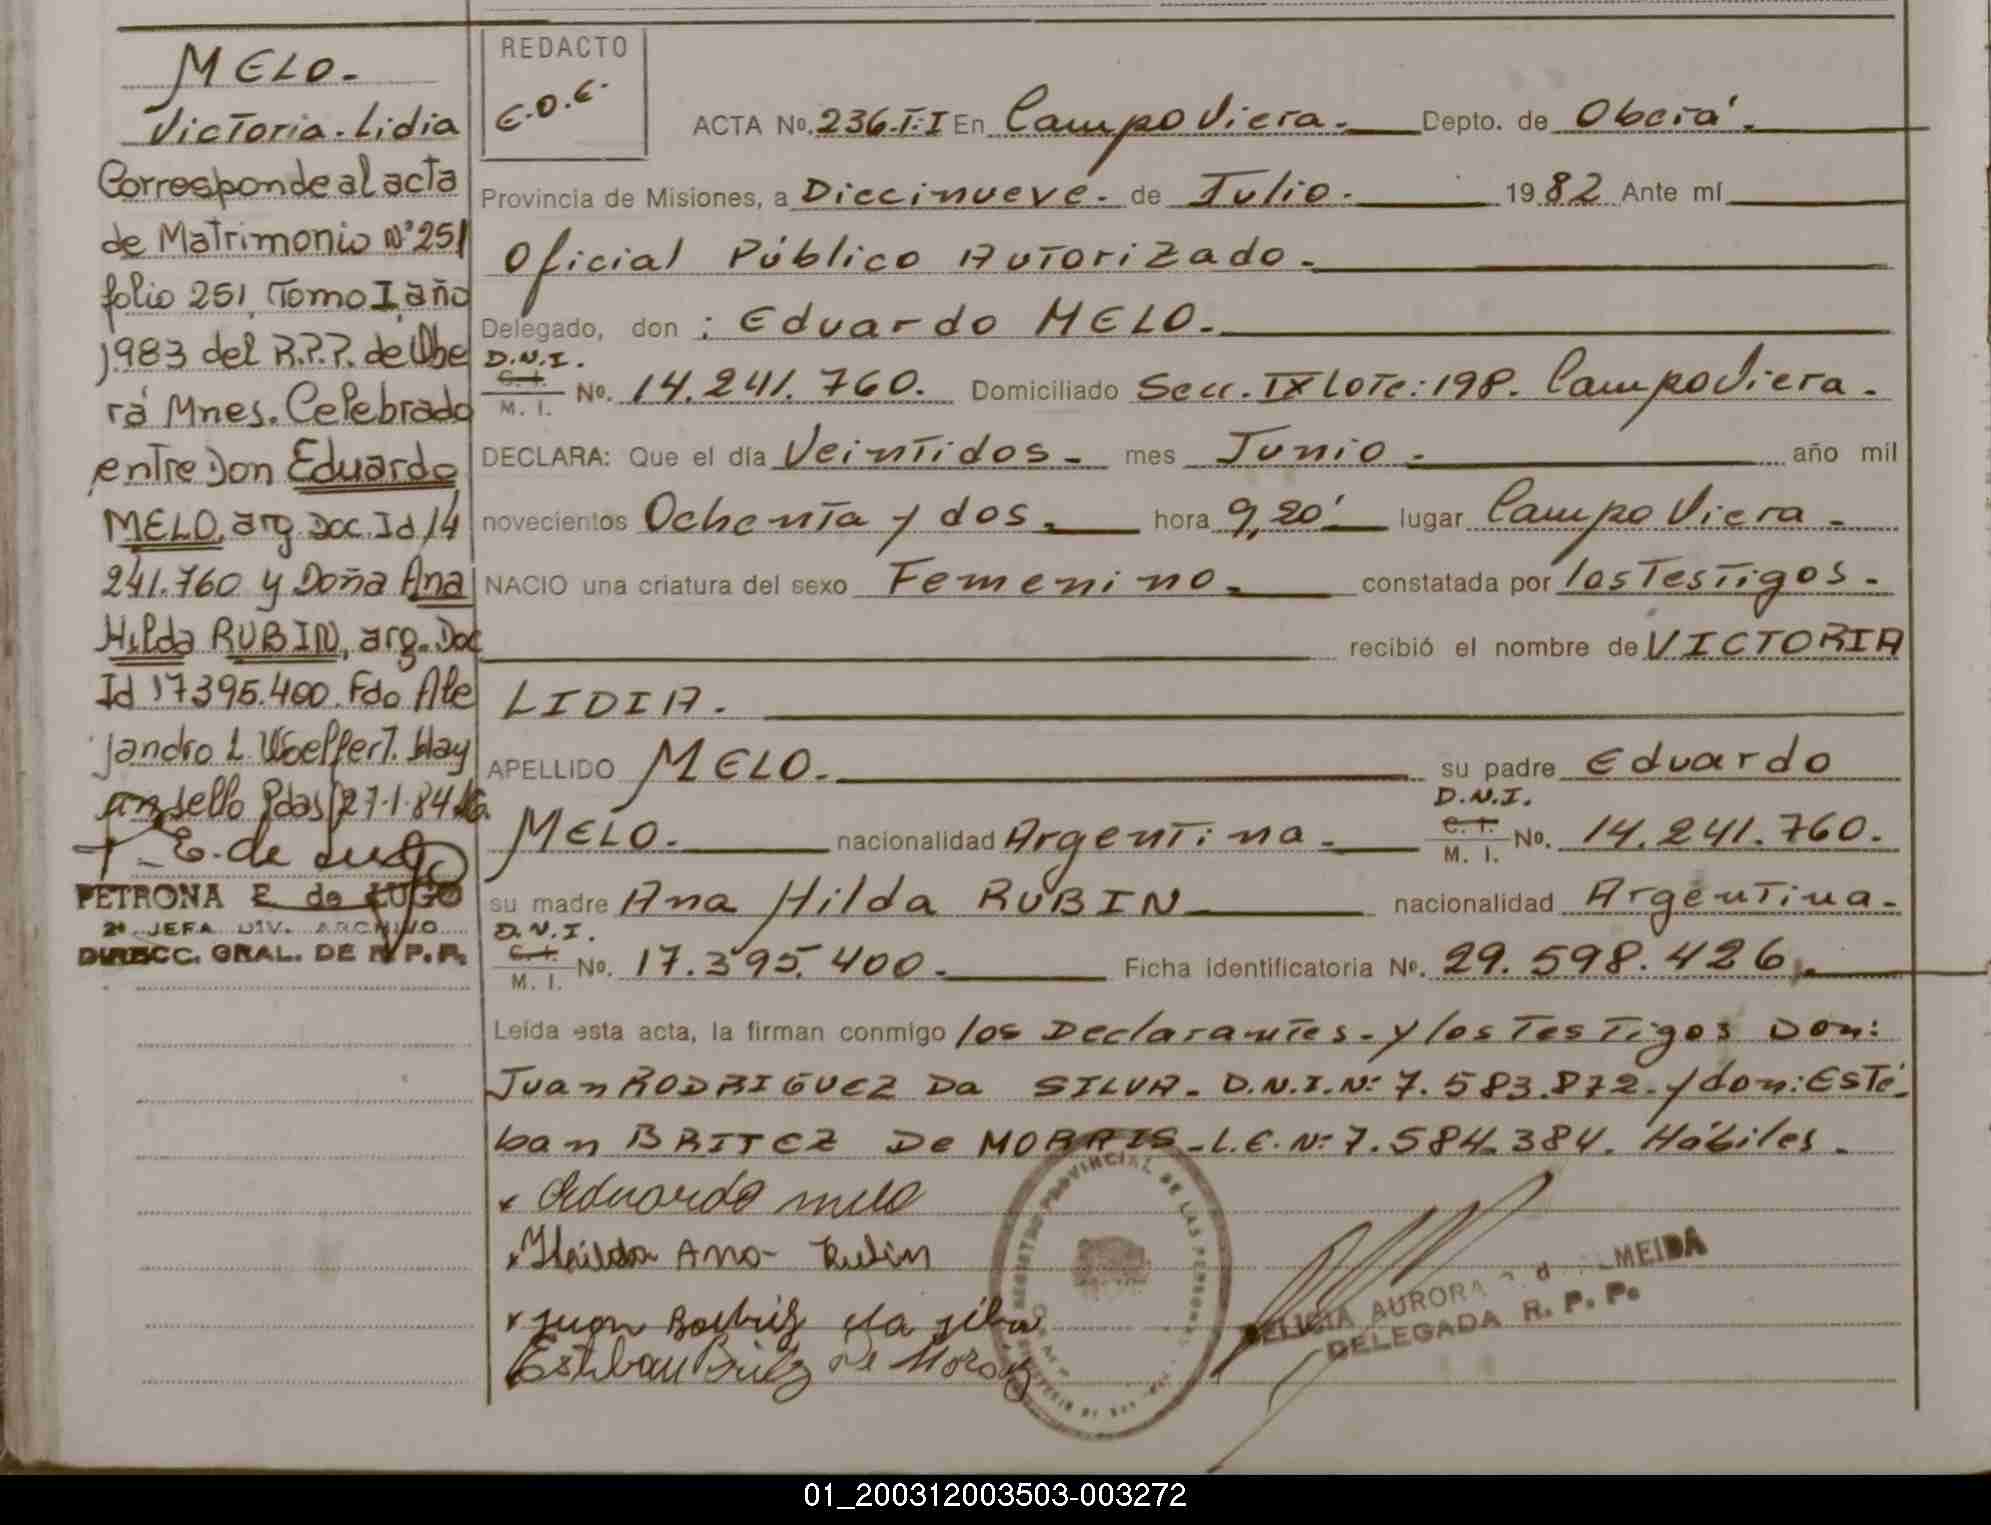 MELO.
Victoria. Lidia
Corresponde al acta
de Matrimonio Nº 251
folio 251, Tomo I, año
1983 del R.P.P. de Obe
rá Mnes. Celebrado
entre Don Eduardo
MELO, arg. Doc. Id 14
241.760 y Doña Ana
Hilda RUBIN, arg. Doc
Id 17395.400. Fdo Ale
jandro L. Hay
un sello Pdas 27-1-84
E. de Lugo
PETRONA E. de LUGO
2ª JEFA DIV. ARCHIVO
DIRECC. GRAL. DE R. P. P.
REDACTO
E.O.E.
ACTA No. 236.T:I En Campo Viera. Depto. de Oberá.
Provincia de Misiones, a Diecinueve. de Julio. 1982 Ante mí
Oficial Público Autorizado.
Delegado, don : Eduardo MELO.
D.N.I.
C. I.
M. I. No. 14.241.760. Domiciliado Secc. IX Lote: 198. Campo Viera.
DECLARA: Que el día Veintidos. mes Junio. año mil
novecientos Ochenta y dos. hora 9,20' lugar Campo Viera.
NACIO una criatura del sexo Femenino. constatada por los Testigos.
recibió el nombre de VICTORIA
LIDIA.
APELLIDO MELO. su padre Eduardo
MELO. nacionalidad Argentina. D.N.I. C. I. M. I. No. 14.241.760.
su madre Ana Hilda RUBIN nacionalidad Argentina.
D.N.I.
C. I.
M. I. No. 17.395.400. Ficha identificatoria No. 29.598.426.
Leída esta acta, la firman conmigo los Declarantes. y los Testigos Don:
Juan RODRIGUEZ Da SILVA. D.N.I. Nº 7.583.872. y don: Esté
ban BRITEZ De MORRIS. L.E. Nº 7.584.384. Hábiles.
x Eduardo melo
x Hilda Ana Rubin
x Juan da silva
Esteban Britez De
REGISTRO PROVINCIAL DE LAS PERSONAS
FELICIA AURORA d ALMEIDA
DELEGADA R. P. P.
01_200312003503-003272